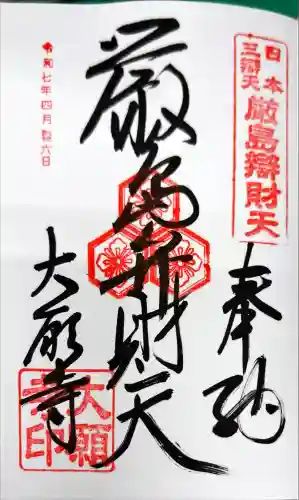 日本
三辯天
厳島辯財天
奉納
厳島弁財天
大願寺
大願
寺印
令和七年四月 六日